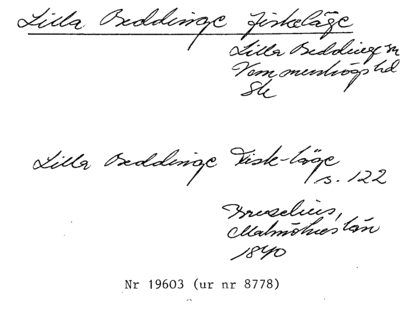 Lilla Beddinge fiskeläge
Lilla Beddinge sn
Vemmenhögs hd
Sk
Lilla Beddinge Fisk-läge
s. 122
Bruselius,
Malmöhus län
1840
Nr 19603 (ur nr 8778)